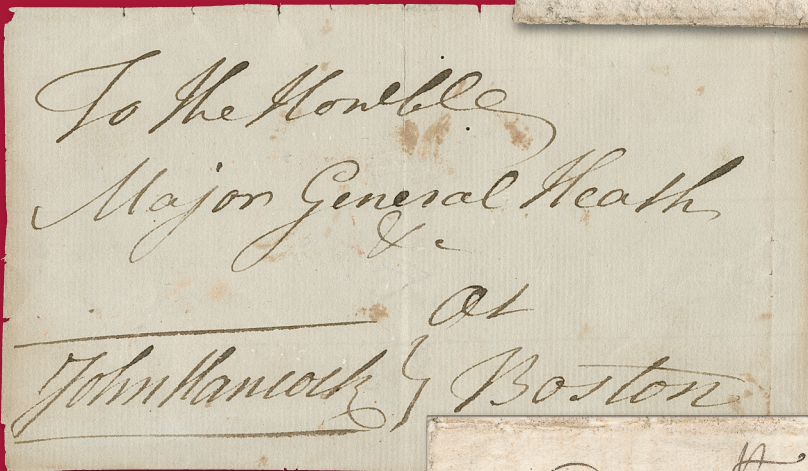 To the Honble
Major General Heath
&c
at
John Hancock } Boston